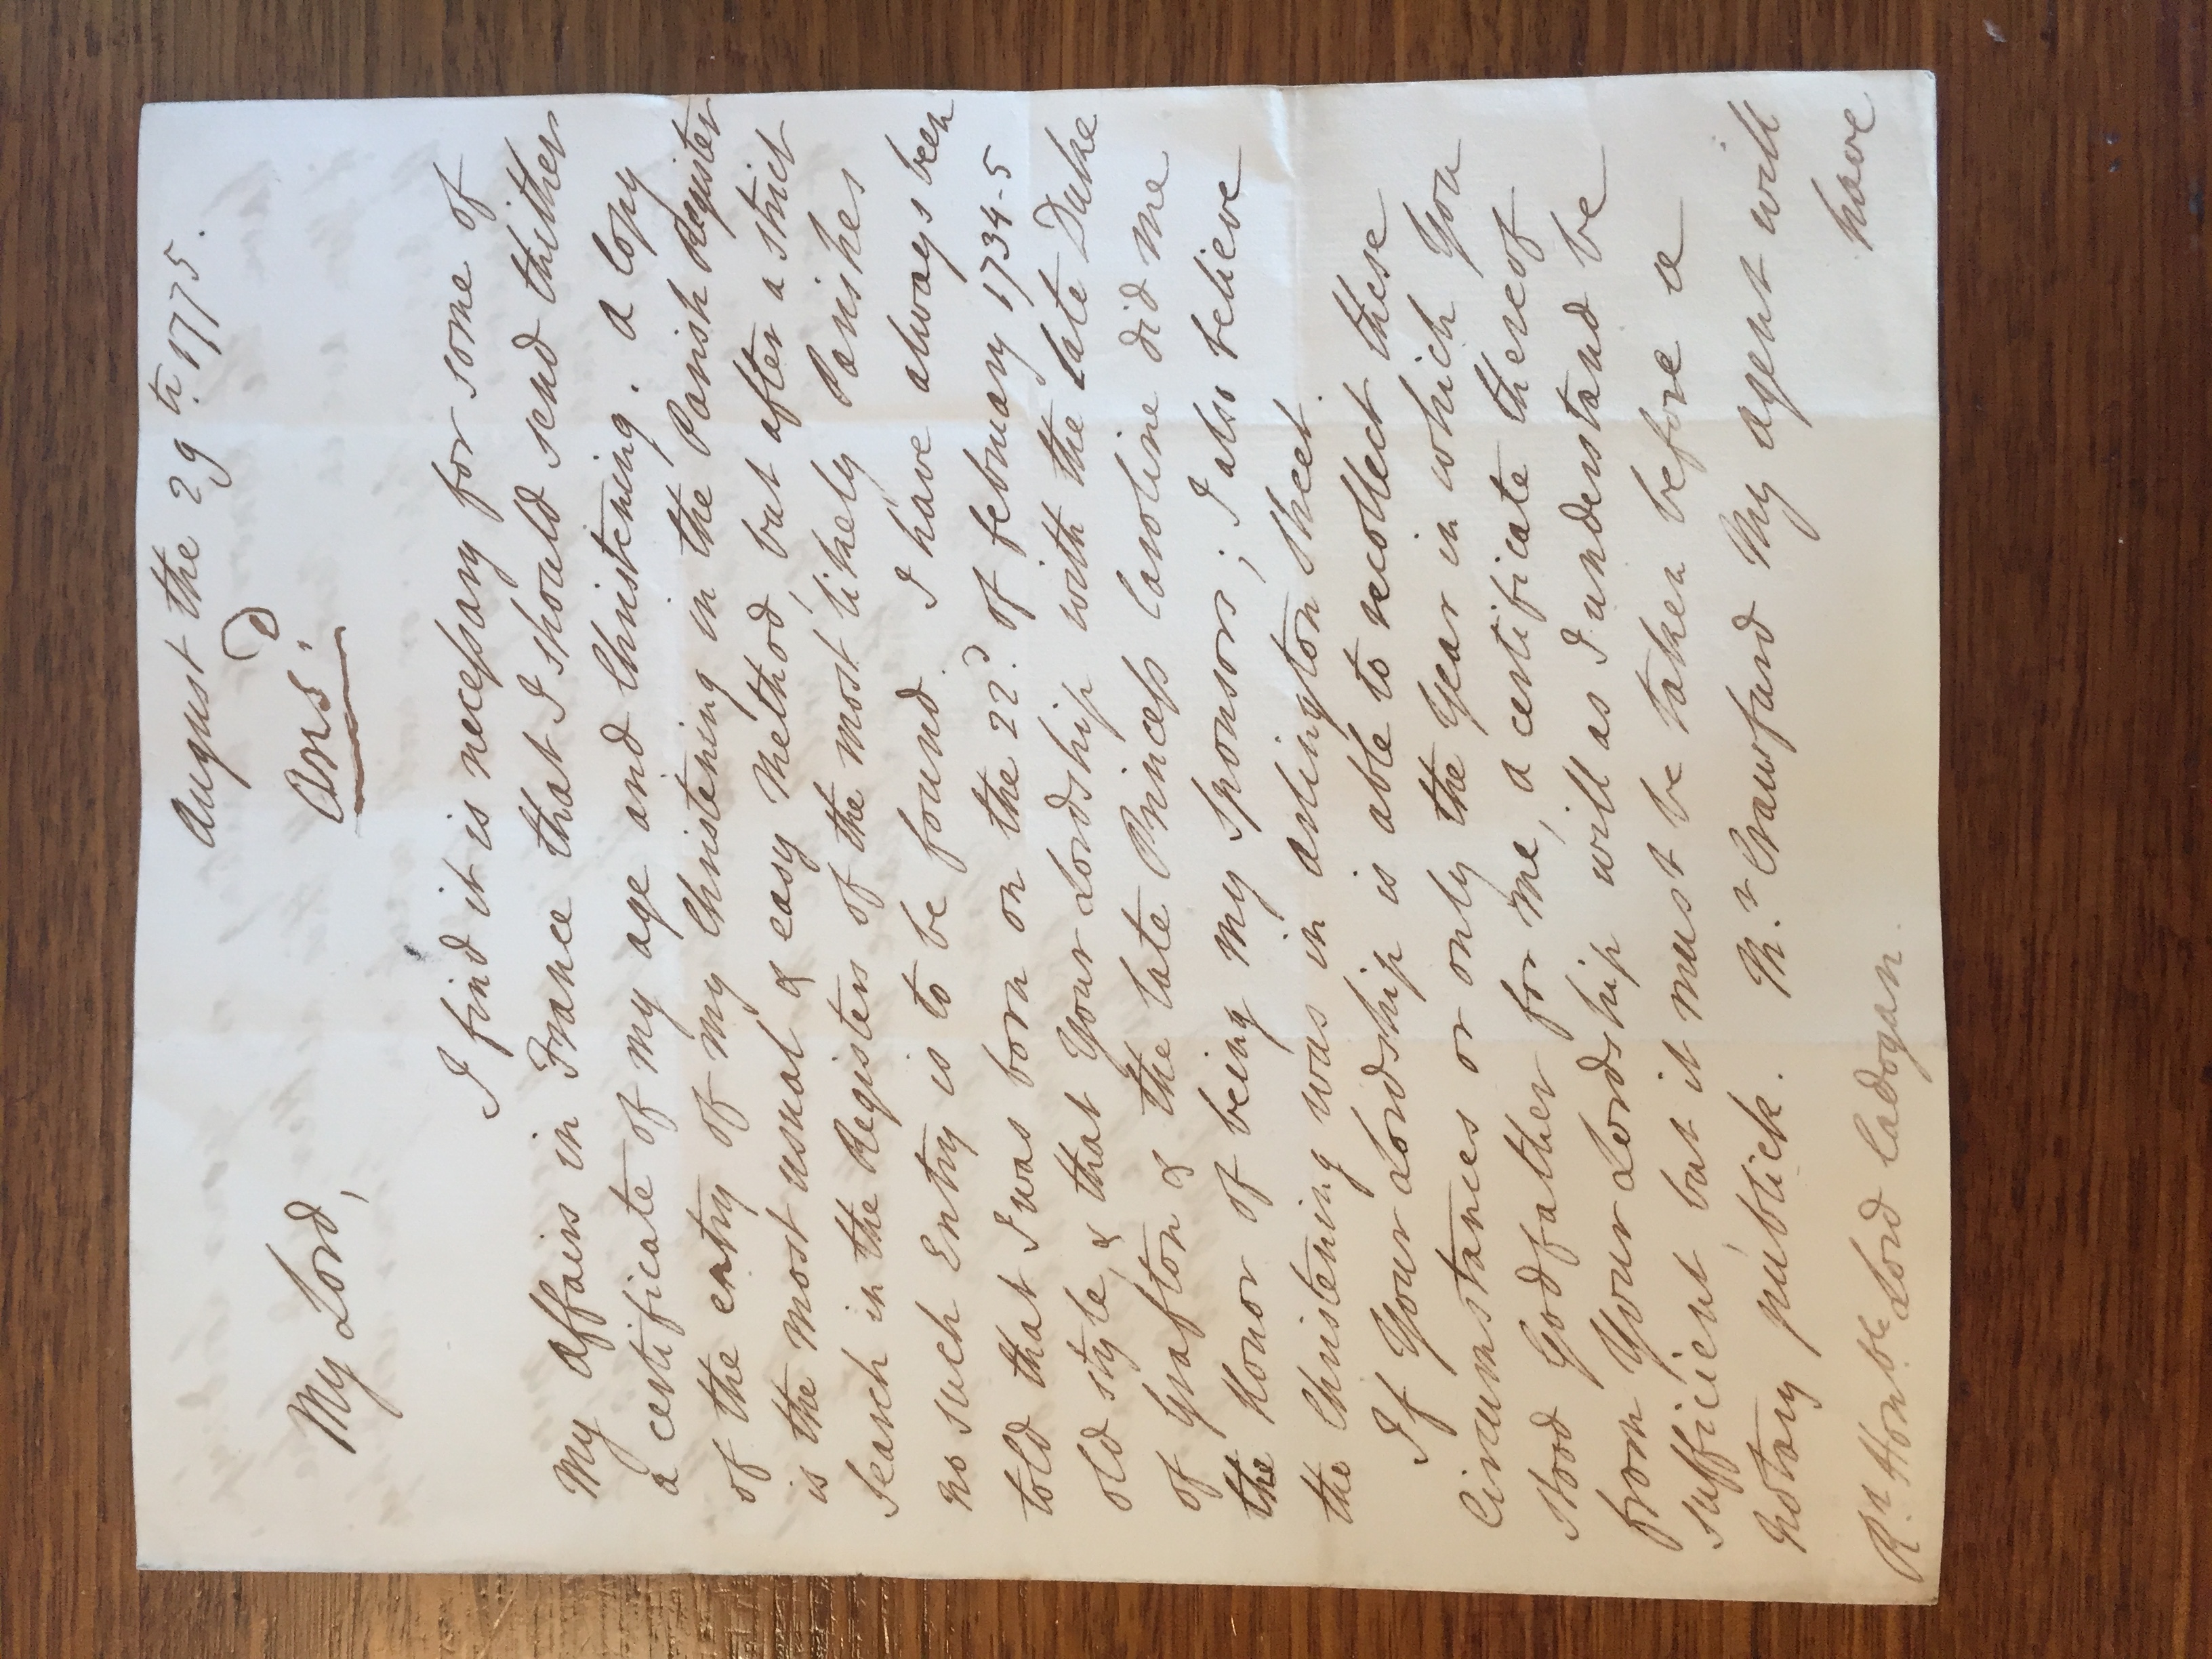 August the 29th. 1775.
My Lord,
Ans.d
I find it is necessary for some of
My affairs in France that I should send thither
a certificate of my age and Christening. a Copy
of the entry of my Christening in the Parish Register
is the most usual & easy Method, but after a strict
search in the Registers of the most likely Parishes
no such Entry is to be found. I have always been
told that I was born on the 22d. of february 1734-5
old style, & that Your Lordship with the late Duke
of Grafton & the late Princess Caroline did me
the Honor of being my sponsors; I also believe
the Christening was in arlington Street.
If Your Lordship is able to recollect these
Circumstances or only the Year in which You
stood Godfather for Me, a certificate thereof
from Your Lordship will as I understand be
sufficient, but it must be taken before a
Notary publick. Mr. Crawfurd My agent will
have
Rt. Honble. Lord Cadogan.